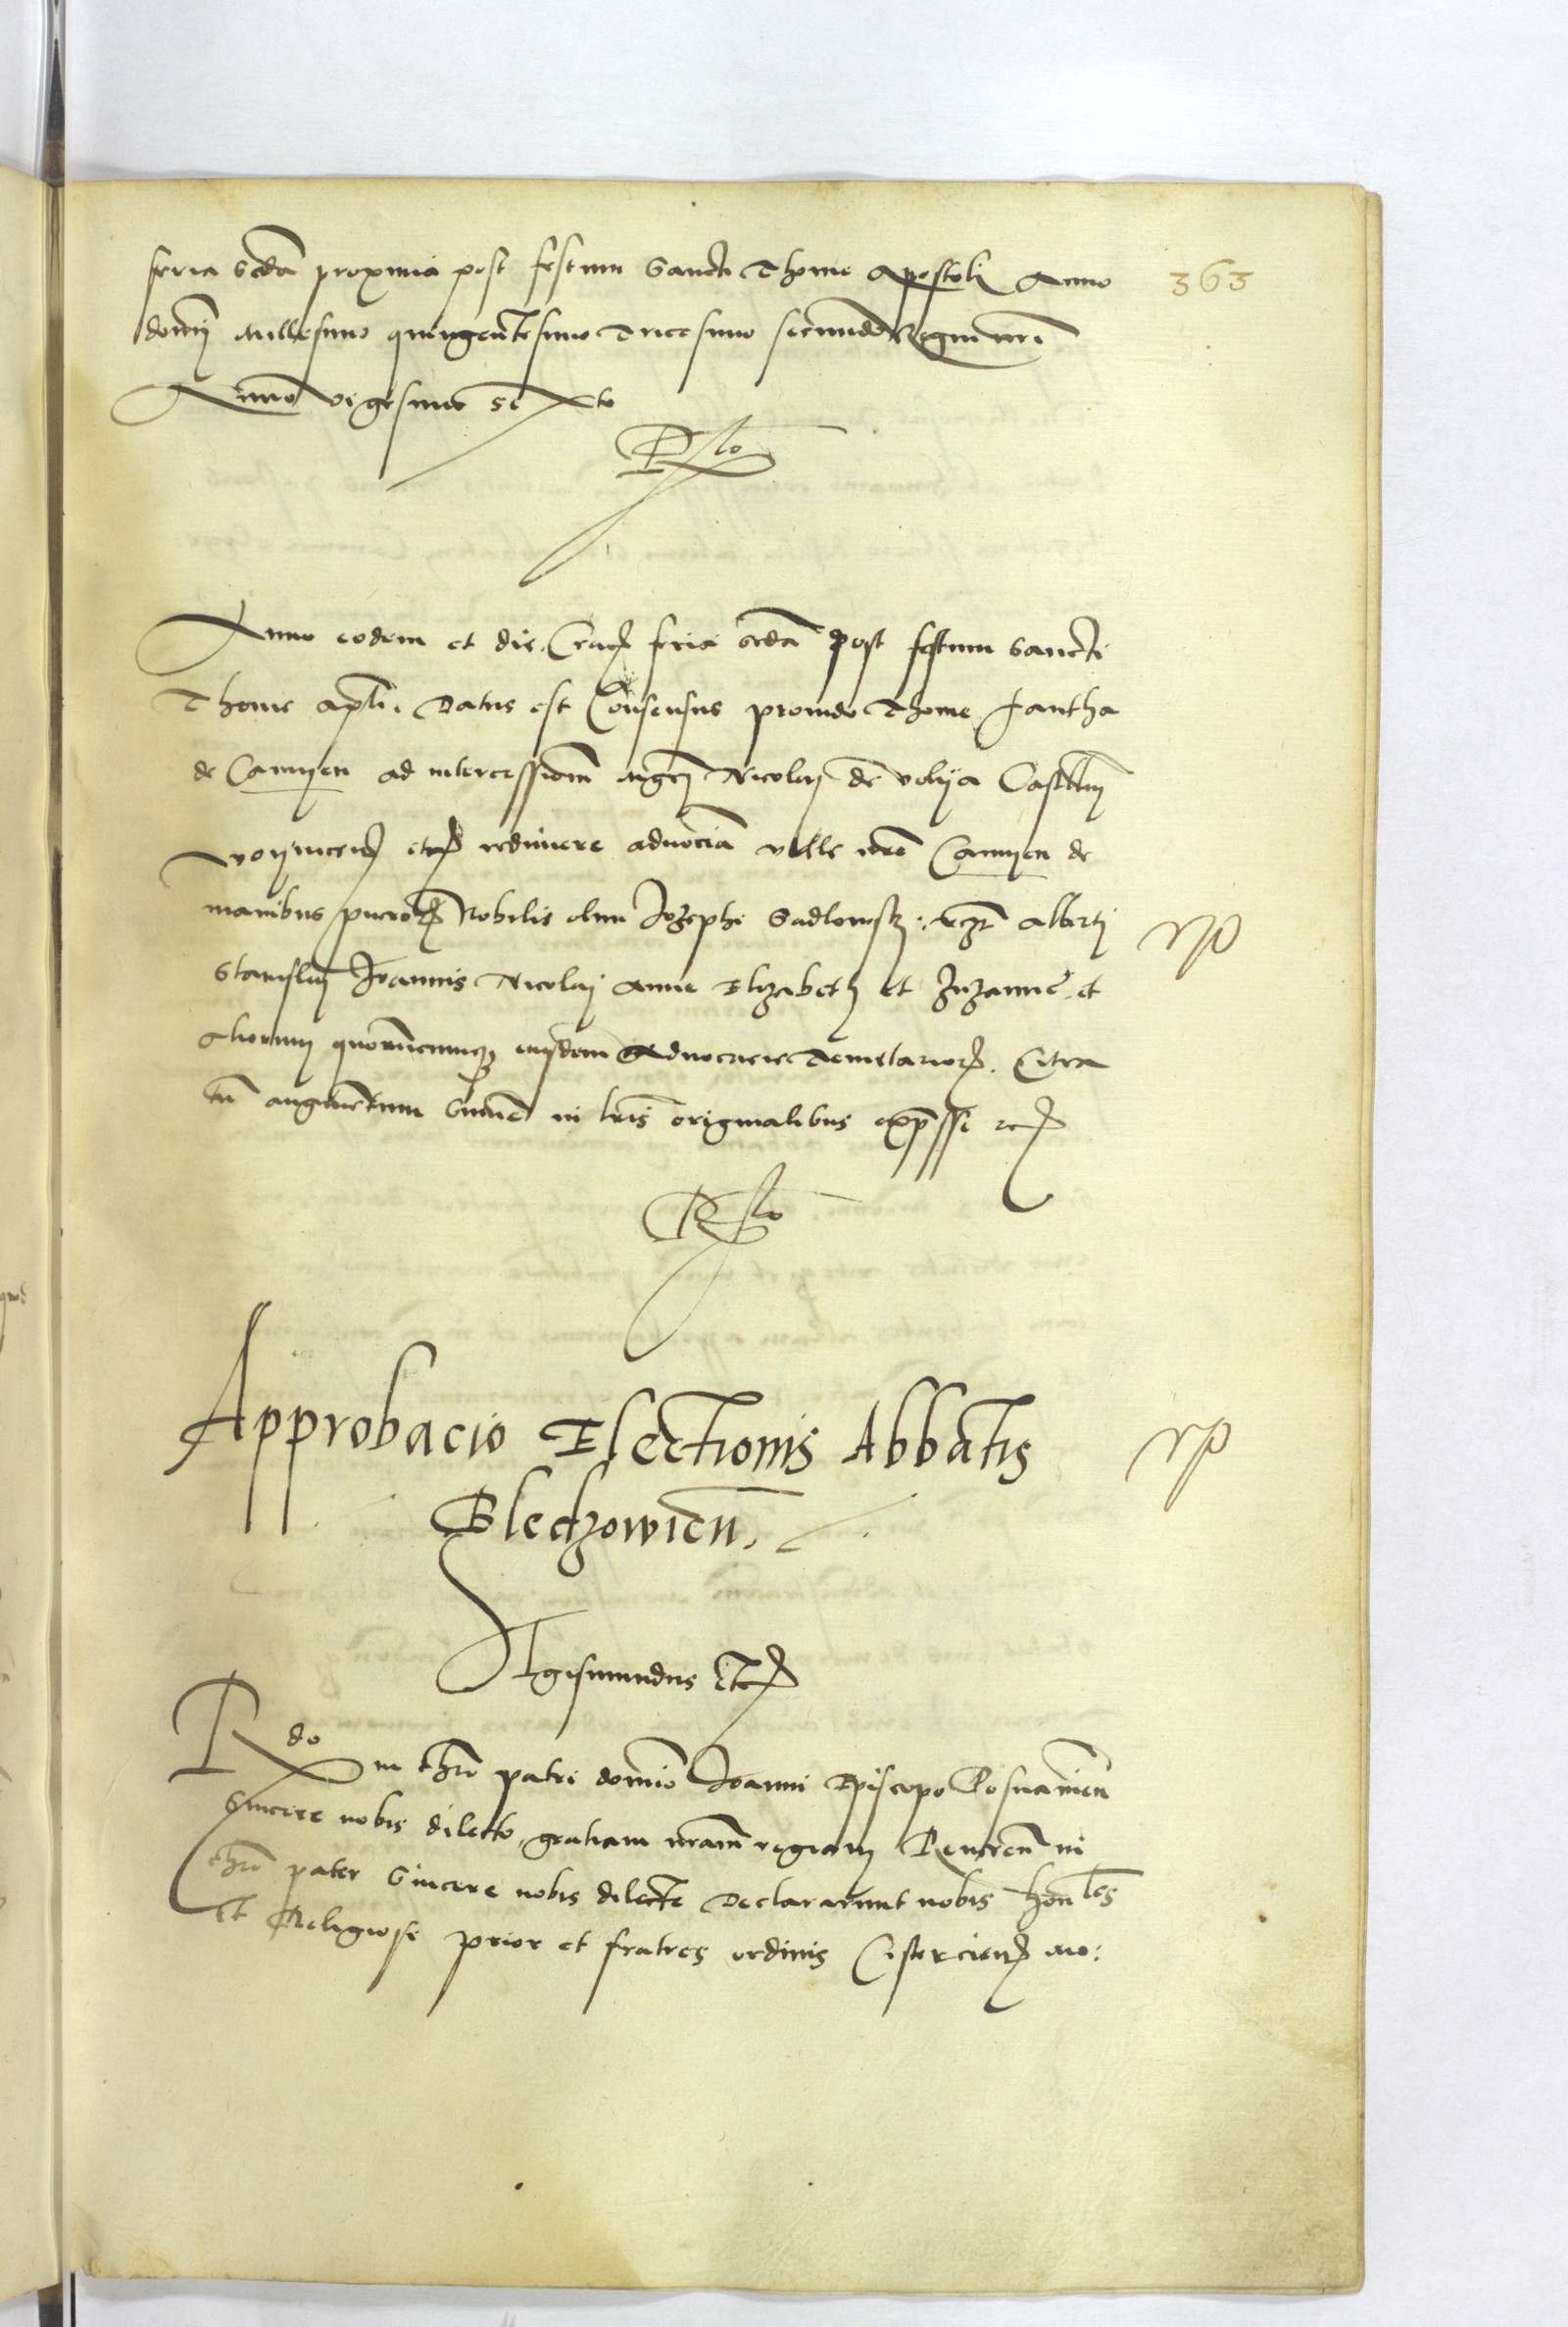 feria scda proxima post festum Sancti Thome Apostoli Anno
363
domij Millesimo quingentesimo Tricesimo secundo Regni nri
Anno vigesimo sexto
Rsto
Anno eodem et die. Crac feria scda post festum Sancti
Thome apli. Datus est Consensus prouido Thome Jantha
de Camyen ad intercessiom mgci Nicolaj de volija Castllnj
voijnicen etc redimere aduociam ville nre Camyen de
manibus pueror Nobilis olim Jozephi Sadlowsky: vzt alberti
rp
Stanislaj Joannis Nicolaj Anne Elizabeth et Zuzanne et
aliorum quorumcunqz eiusdem Aduocacie Tenutarior. Citra
tn augmentum Summe in lris originalibus expsse etc
Rsto
Approbacio Electionis Abbatis
rp
Bledzowien.
Sigismundus Etc
Rdo in chro patri domino Joanni Episcopo Posnanien
Sincere nobis dilecto, gratiam nram regiam Reueren in
chro pater Sincere nobis dilecte Declararunt nobis honles
et Religiosi prior et fratres ordinis Cistercien mo: